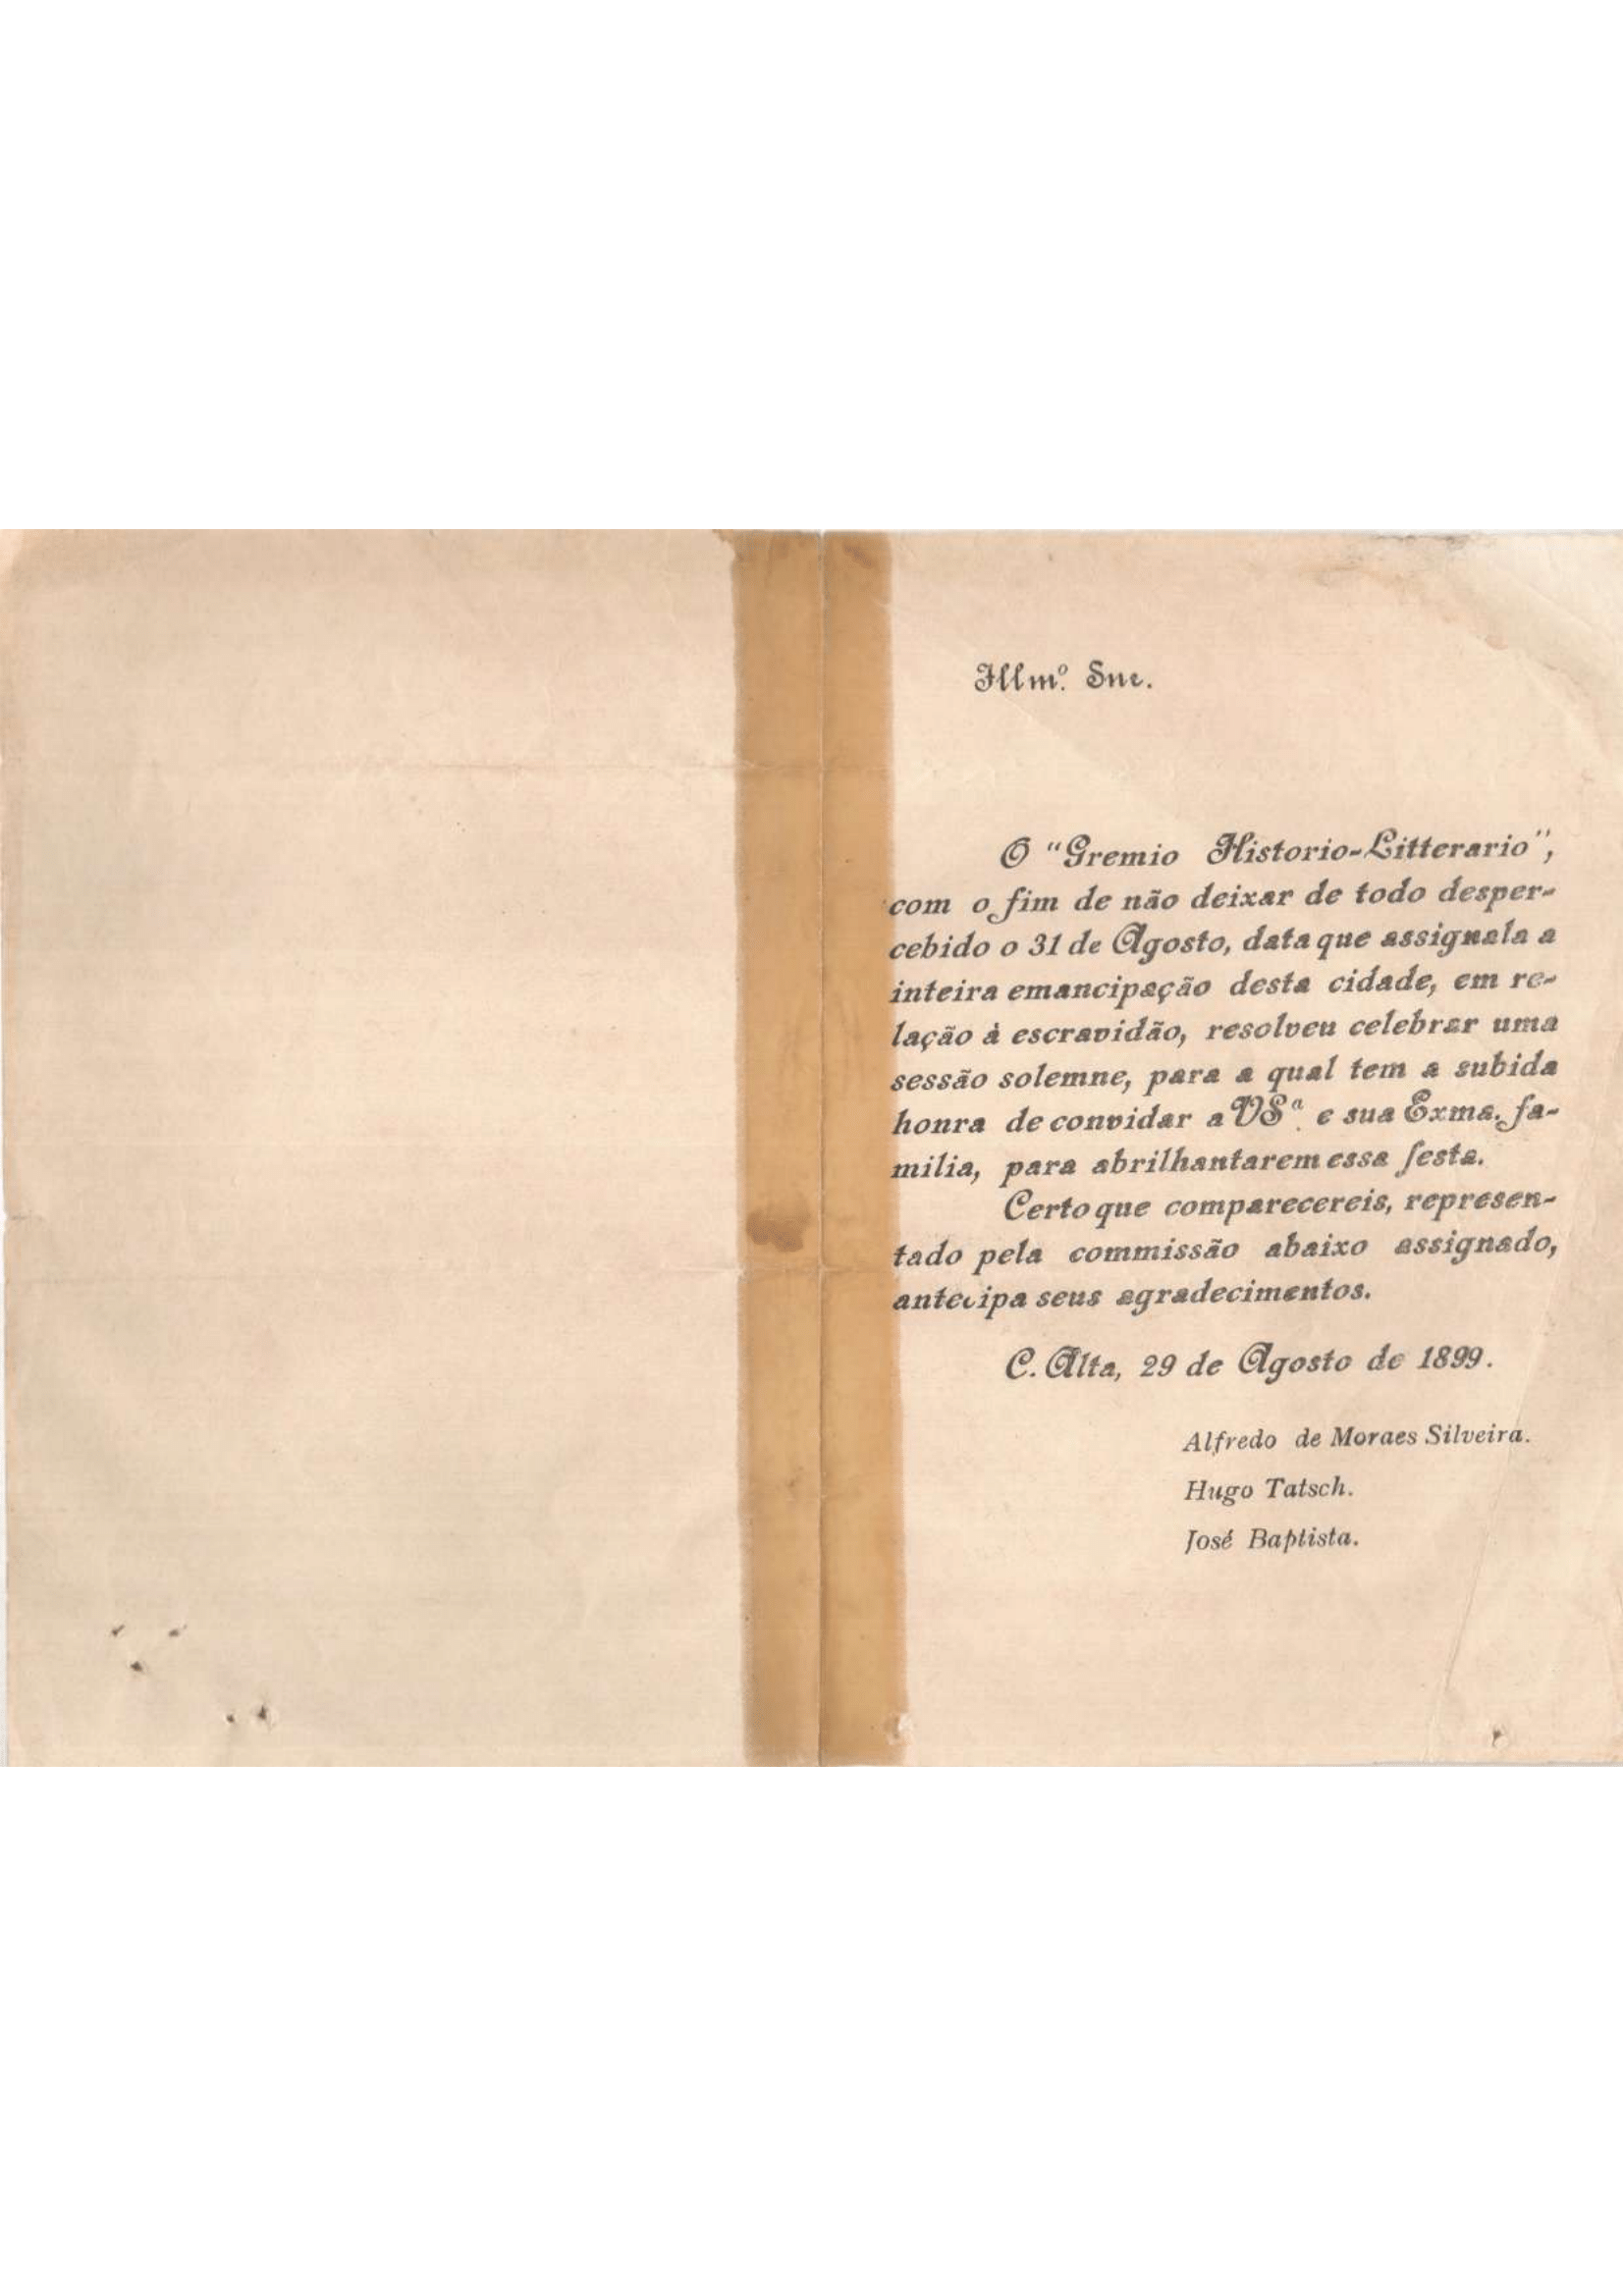 Illmº. Snr.
O "Gremio Historio-Litterario",
com o fim de não deixar de todo desper-
cebido o 31 de Agosto, data que assignala a
inteira emancipação desta cidade, em re-
lação à escravidão, resolveu celebrar uma
sessão solemne, para a qual tem a subida
honra de convidar a VSª. e sua Exma. fa-
milia, para abrilhantarem essa festa.
Certo que comparecereis, represen-
tado pela commissão abaixo assignado,
antecipa seus agradecimentos.
C. Alta, 29 de Agosto de 1899.
Alfredo de Moraes Silveira.
Hugo Tatsch.
José Baptista.